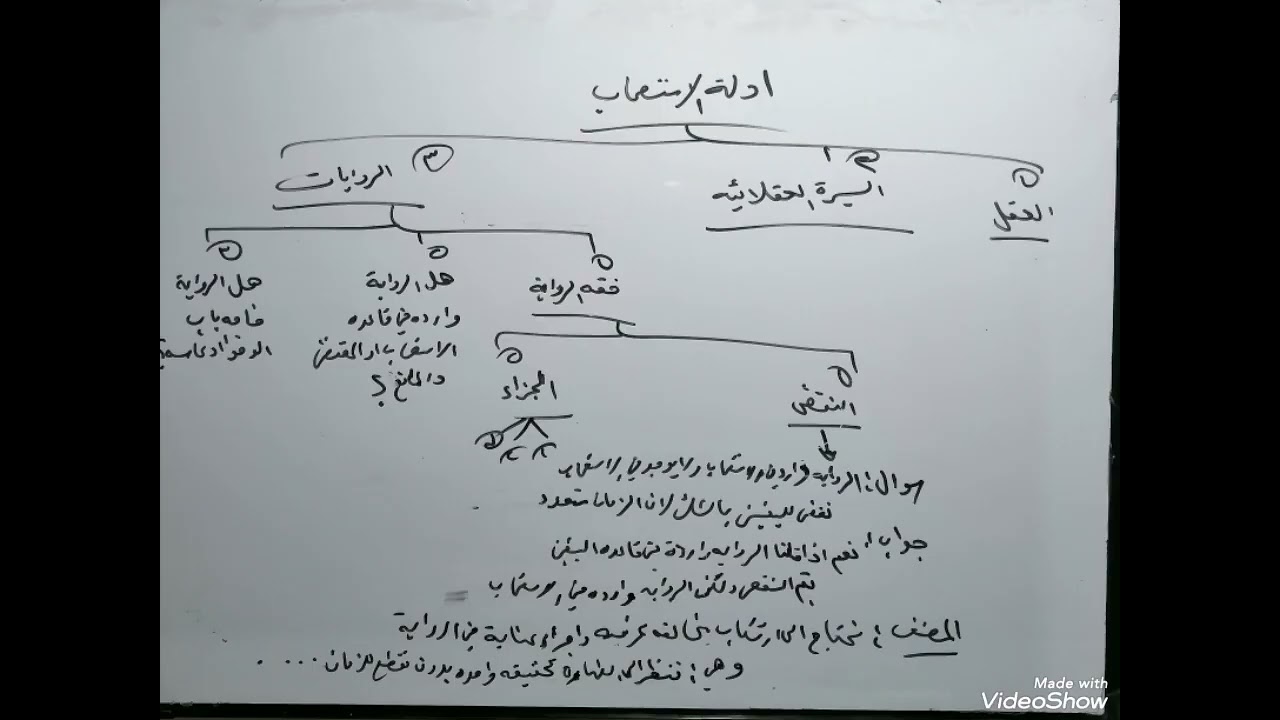 ادلة الاستصحاب
١
العقل
٢
السيرة العقلائيه
٣
الروايات
١
فقه الرواية
٢
هل الرواية
وارده في قاعده
الاستصحاب او المقتضي
والمانع ؟
٣
هل الرواية
خاصه باب
الوضوء او عامه
١
النقض
٢
الجزاء
سوال: الروايه واردة في الاستصحاب ولا يوجد في الاستصحاب
نقض لليقين بالشك لان الزمان متعدد
جواب: نعم اذا قلنا الروايه واردة في قاعده اليقين
يتم النقض ولكن الروايه وارده في الاستصحاب
المصنف: نحتاج الى ارتكاب مخالفه عرفيه واجراء عناية في الرواية
وهي: ننظر الى الطهارة كحقيقه واحده بدون تقطع للزمان ....
Made with
VideoShow